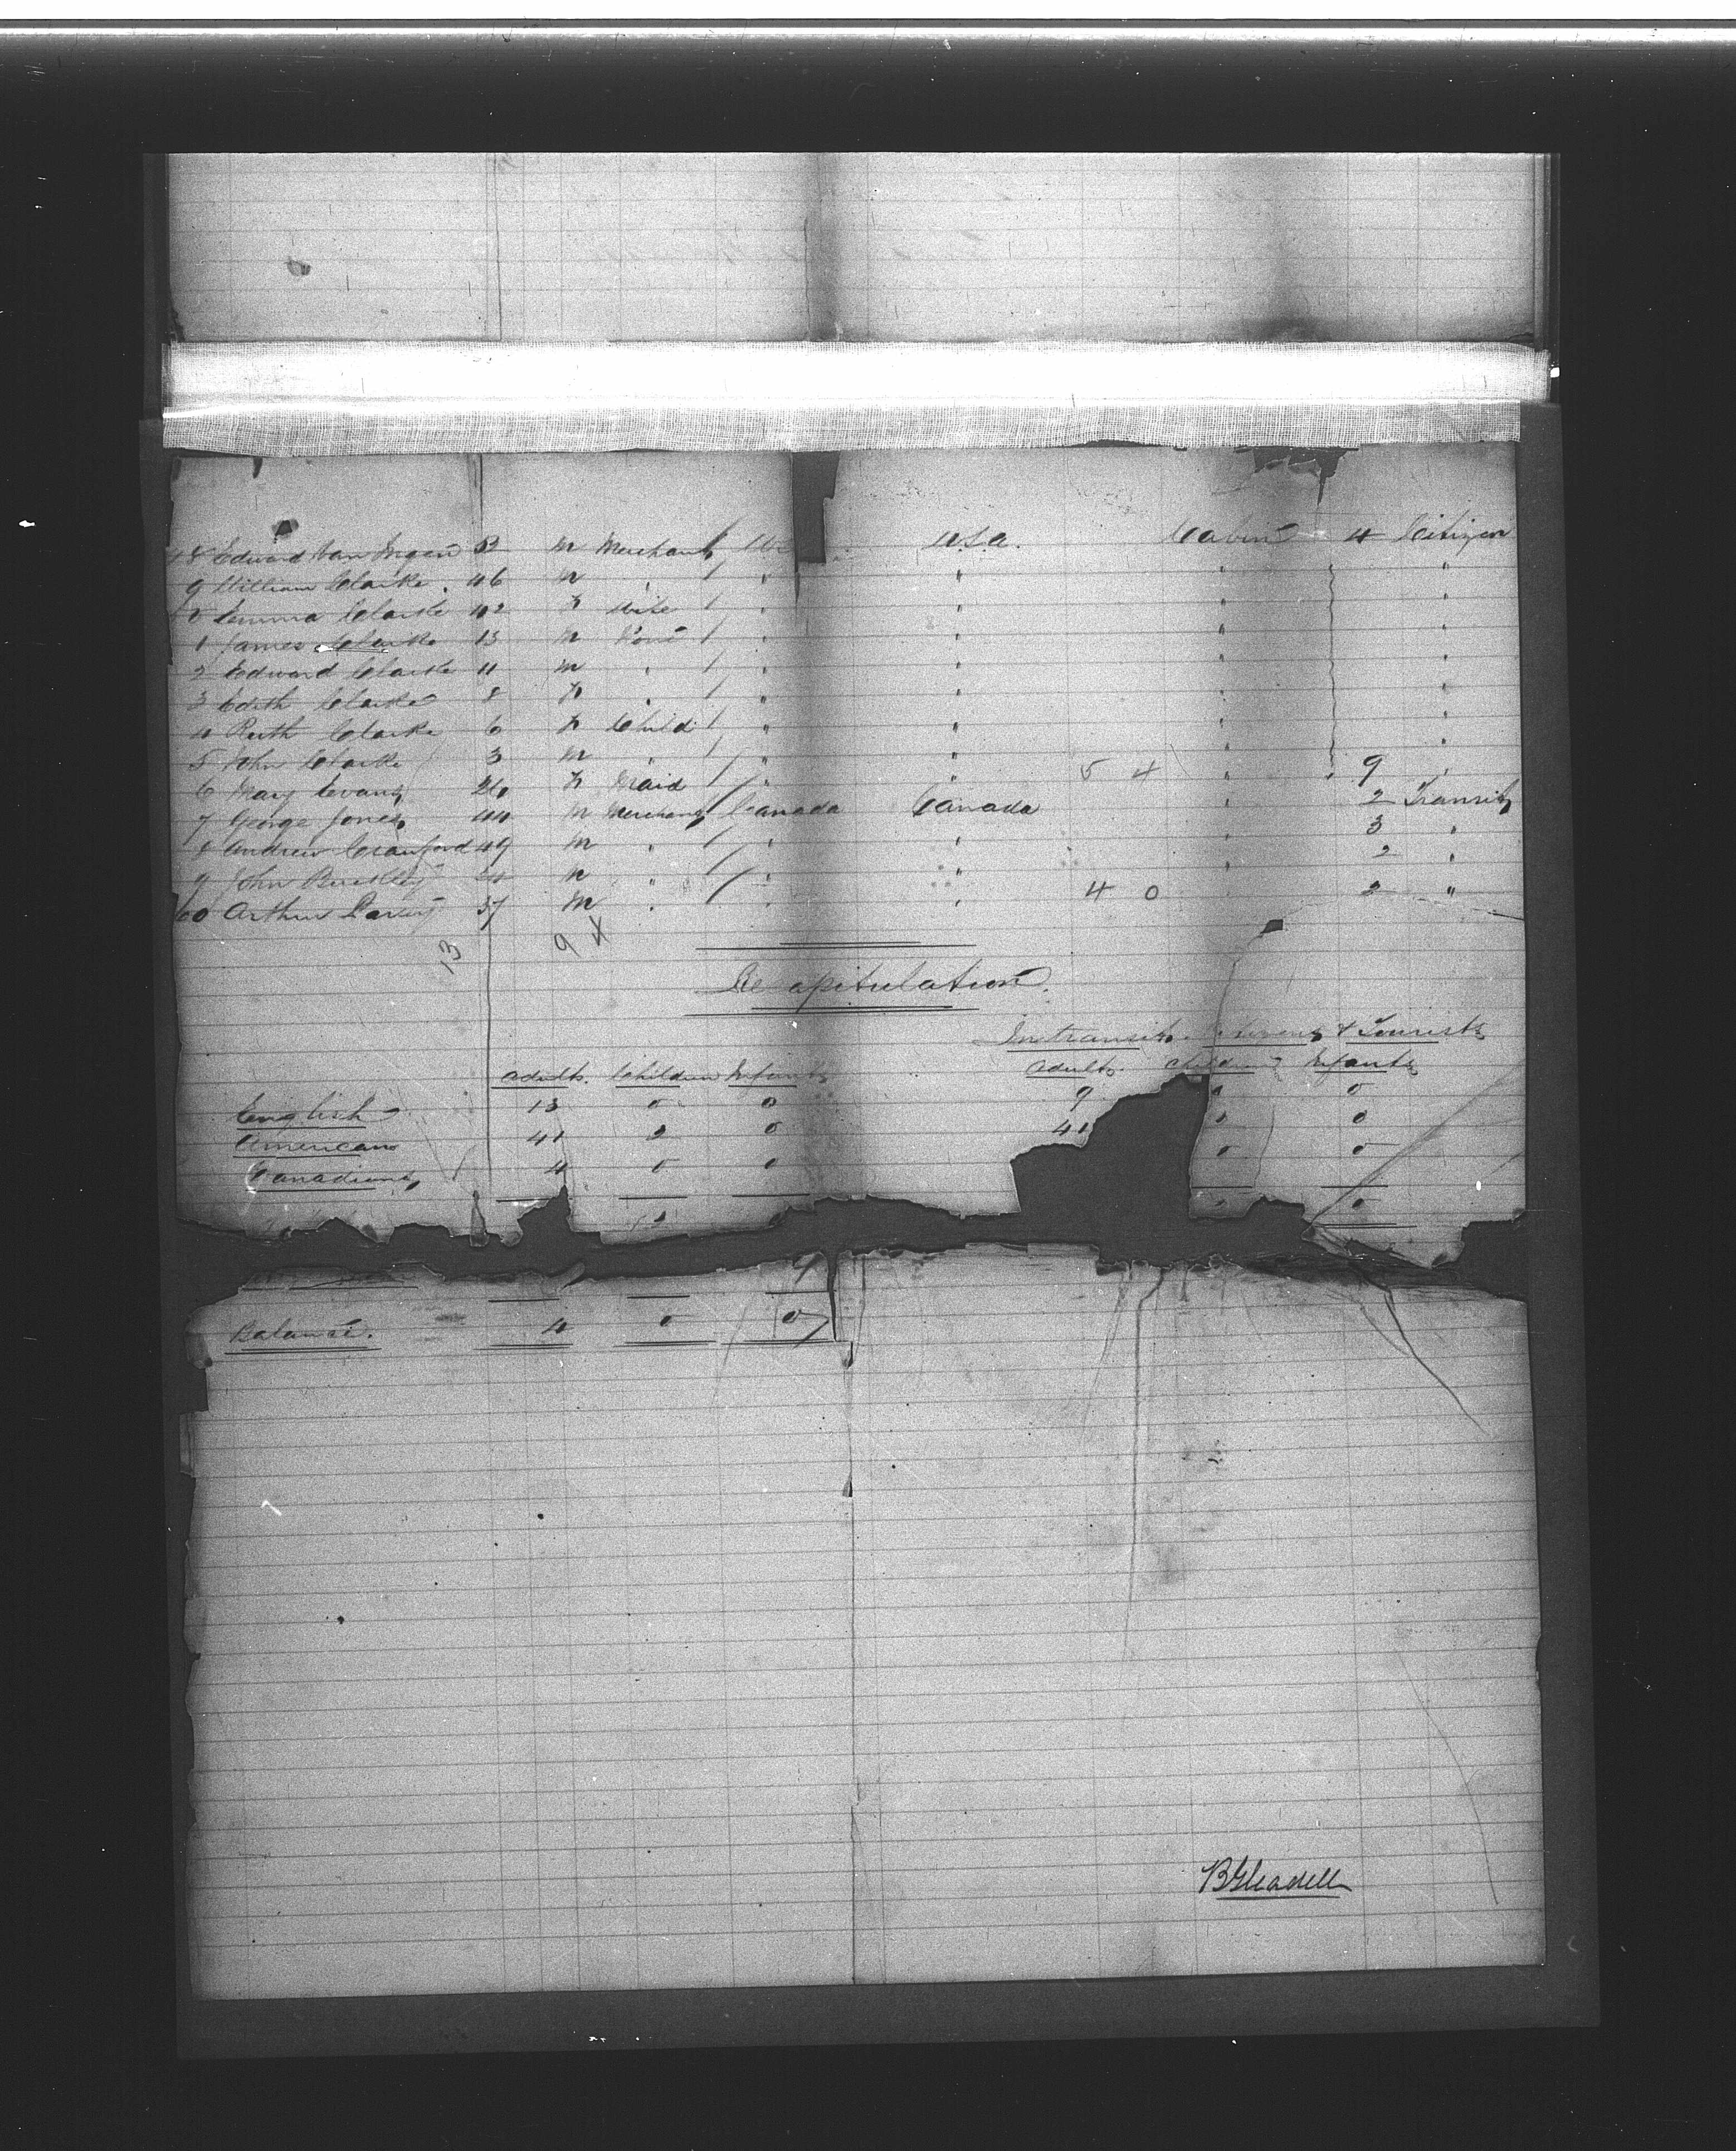 48 Edward Van Ingen 52 M Merchant / U.S.A. Cabin 4 Citizen
9 William Clarke 46 M " / " " " "
0 Emma Clarke 42 F Wife / " " " "
1 James Clarke 13 M None / " " " "
2 Edward Clarke 11 M " / " " " "
3 Edith Clarke 8 F " / " " " "
4 Ruth Clarke 6 F Child / " " " "
5 John Clarke 3 M " / " " " "
6 Mary Evans 26 F Maid / " " 5 4 " " 9
7 George Jones 44 M Merchant / Canada Canada " 2 Transit
8 Andrew Cranford 49 M " / " " " 3 "
9 John Buckley 24 M " / " " " 2 "
60 Arthur 37 M " / " " 4 0 " 2 "
13 9 4
Recapitulation.
Intransit & Tourists
Adults. Children Infants Adults. Children Infants
English 13 0 0 9 0 0
American 41 2 0 41 0
Canadians 4 0 0 0 0
2 0
Balance. 4 0 0
B Gleadell